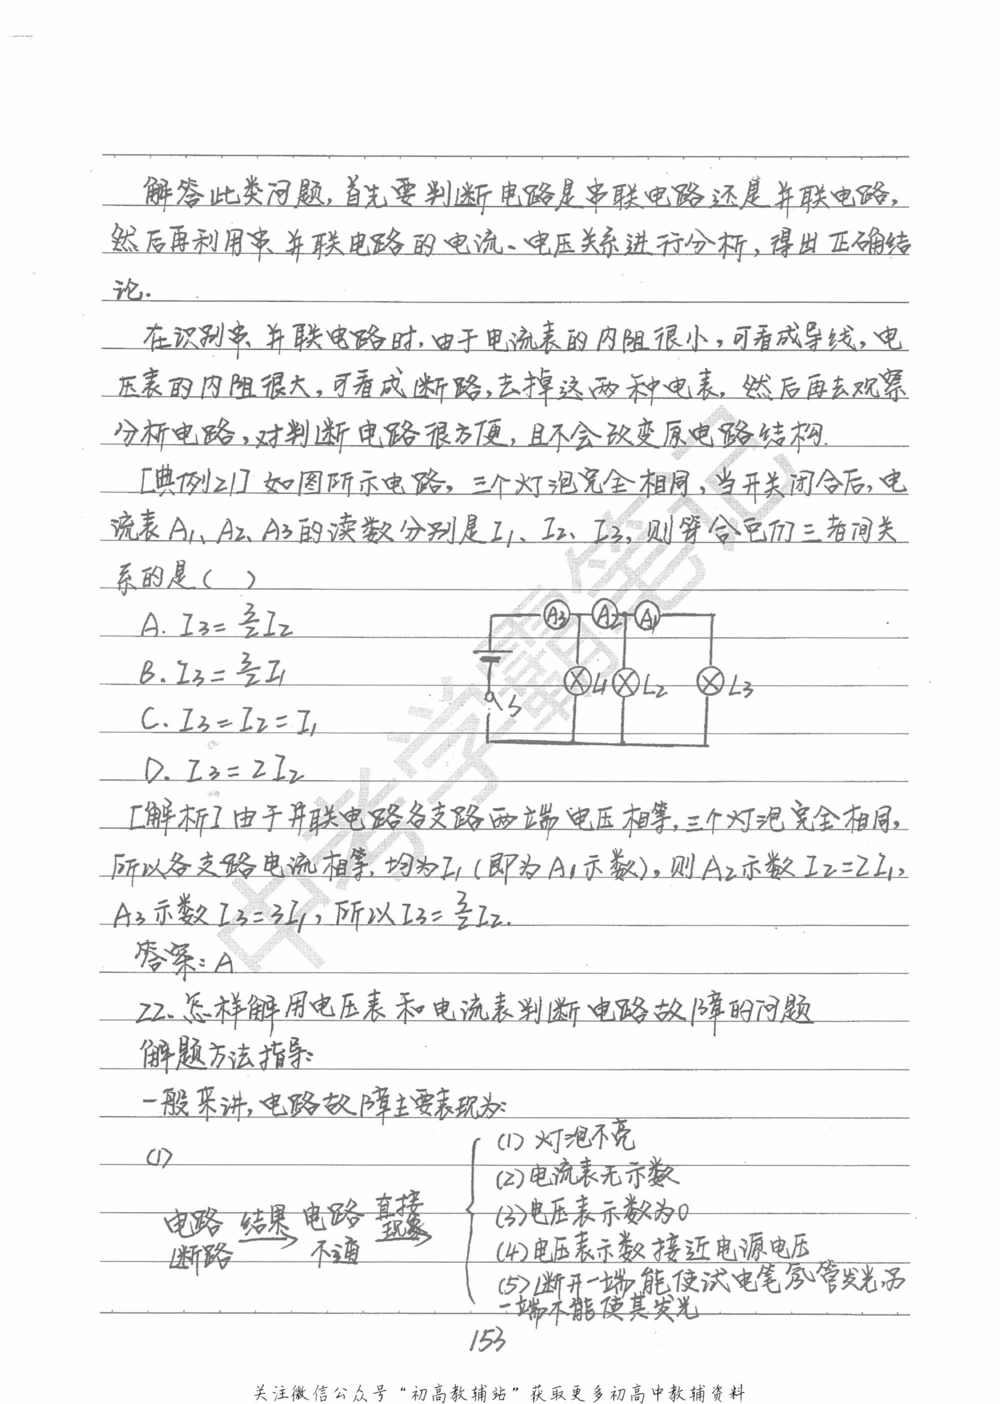 解答此类问题，首先要判断电路是串联电路还是并联电路，
然后再利用串、并联电路的电流、电压关系进行分析，得出正确结
论.
在识别串、并联电路时，由于电流表的内阻很小，可看成导线，电
压表的内阻很大，可看成断路，去掉这两种电表，然后再去观察
分析电路，对判断电路很方便，且不会改变原电路结构.
[典例21] 如图所示电路，三个灯泡完全相同，当开关闭合后，电
流表A1、A2、A3的读数分别是I1、I2、I3，则符合它们三者间关
系的是（ ）
A. I3=3/2I2
B. I3=3/2I1
C. I3=I2=I1
D. I3=2I2
A3 A2 A1
L1 L2 L3
S
[解析] 由于并联电路各支路两端电压相等，三个灯泡完全相同，
所以各支路电流相等，均为I1（即为A1示数），则A2示数I2=2I1，
A3示数I3=3I1，所以I3=3/2I2.
答案：A
22、怎样解用电压表和电流表判断电路故障的问题
解题方法指导：
一般来讲，电路故障主要表现为：
(1)
电路断路 结果 电路不通 直接现象
(1) 灯泡不亮
(2) 电流表无示数
(3) 电压表示数为0
(4) 电压表示数接近电源电压
(5) 断开一端能使试电笔氖管发光，另
一端不能使其发光
153
关注微信公众号“初高教辅站”获取更多初高中教辅资料
中考学霸笔记